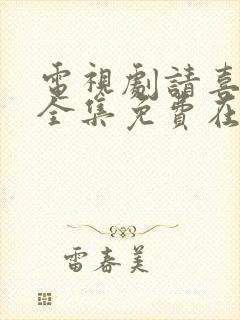 電視劇請喜
全集免費在
雷春美